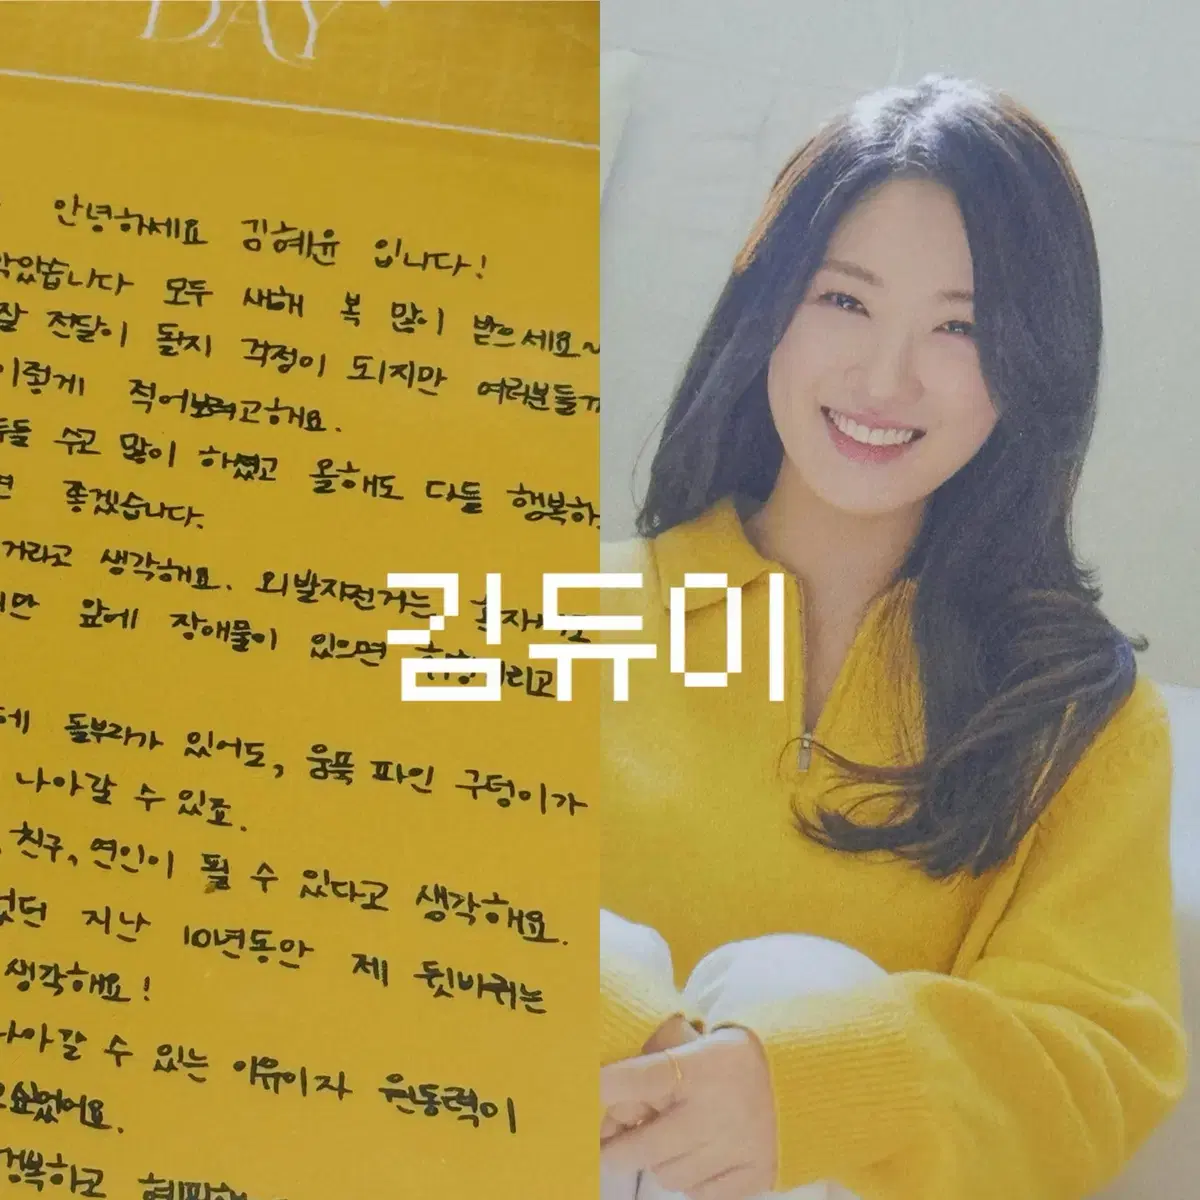 DAY
안녕하세요 김혜윤 입니다!
모두 새해 복 많이 받으세요~
잘 전달이 될지 걱정이 되지만 여러분들께
이렇게 적어보려고해요.
수고 많이 하셨고 올해도 다들 행복하
좋겠습니다.
거라고 생각해요. 외발자전거는
앞에 장애물이 있으면
에 돌부리가 있어도, 움푹 파인 구덩이가
나아갈 수 있죠.
친구, 연인이 될 수 있다고 생각해요.
지난 10년동안 제 뒷바퀴는
생각해요!
나아갈 수 있는 이유이자 원동력이
김듀이